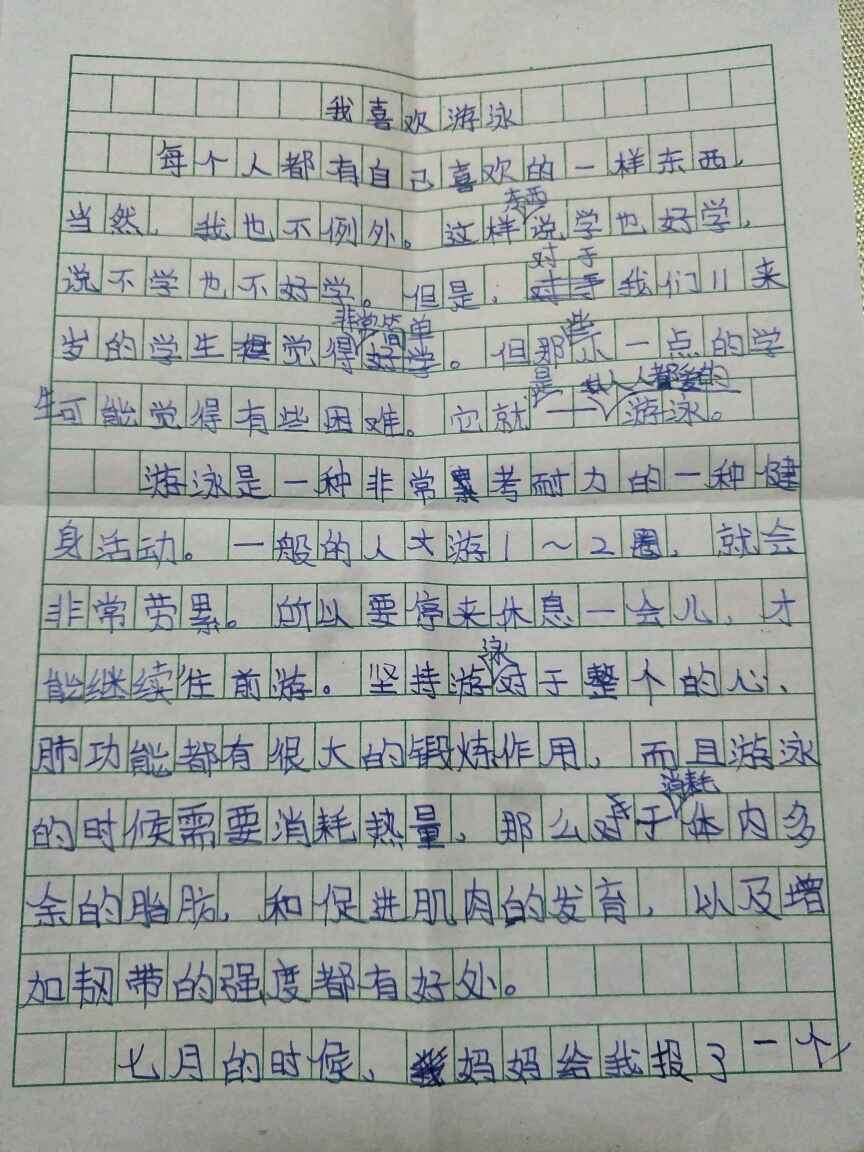 我喜欢游泳
每个人都有自己喜欢的一样东西，
当然，我也不例外。这样东西说学也好学，
说不学也不好学。但是，对于我们11来
岁的学生觉得非常简单。但那些小一点的学
生可能觉得有些困难。它就是——人人都爱的游泳。
游泳是一种非常考耐力的一种健
身活动。一般的人才游1～2圈，就会
非常劳累。所以要停来休息一会儿，才
能继续往前游。坚持游泳对于整个的心、
肺功能都有很大的锻炼作用，而且游泳
的时候需要消耗热量，那么对于消耗体内多
余的脂肪，和促进肌肉的发育，以及增
加韧带的强度都有好处。
七月的时候，妈妈给我报了一个